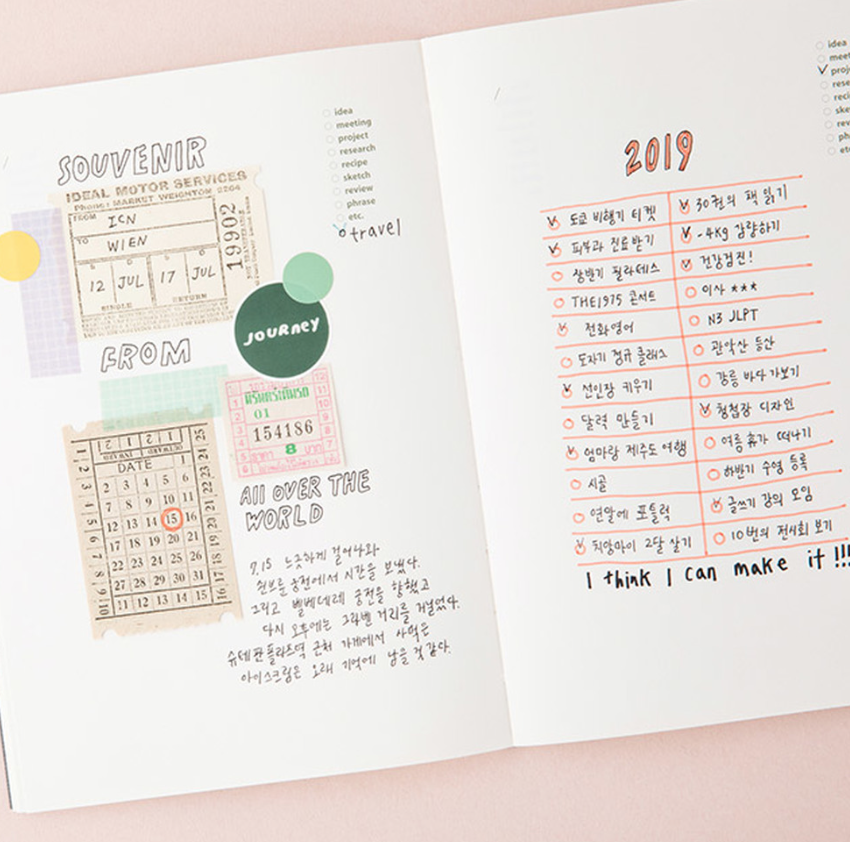 SOUVENIR
IDEAL MOTOR SERVICES
Phone: MARKET WEIGHTON 2204
FROM ICN
TO WIEN
12 JUL 17 JUL
SINGLE RETURN
19902
JOURNEY
FROM
01
154186
8
DATE
1
2 3 4 5 6
7 8 9 10 11
12 13 14 15 16
17 18 19 20 21
22 23 24 25 26
27 28 29 30 31
11 12 13 14 15 16
All OVER THE
WORLD
7.15 느긋하게 걸어나와
쉰브룬 궁전에서 시간을 보냈다.
그리고 벨베데레 궁전을 향했고
다시 오후에는 그라벤 거리를 거닐었다.
슈테판플라츠역 근처 가게에서 사먹은
아이스크림은 오래 기억에 남을 것 같다.
idea
meeting
project
research
recipe
sketch
review
phrase
etc.
travel
2019
도쿄 비행기 티켓
피부과 진료받기
상반기 필라테스
THE1975 콘서트
전화영어
도자기 정규 클래스
선인장 키우기
달력 만들기
엄마랑 제주도 여행
시골
연말에 포틀럭
치앙마이 2달 살기
30권의 책 읽기
-4kg 감량하기
건강검진!
이사 ★★★
N3 JLPT
관악산 등산
강릉 바다 가보기
청첩장 디자인
여름 휴가 떠나기
하반기 수영 등록
글쓰기 강의 모임
10번의 전시회 보기
I think I can make it !!!
idea
meet
proj
rese
reci
ske
rev
ph
et